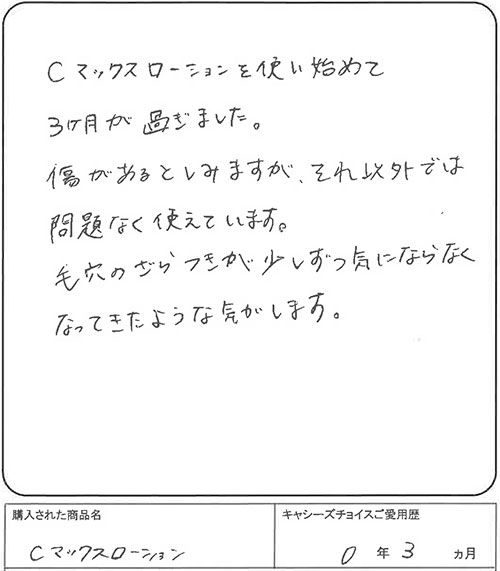 Cマックスローションを使い始めて
3ヶ月が過ぎました。
傷があるとしみますが、それ以外では
問題なく使えています。
毛穴のざらつきが少しずつ気にならなく
なってきたような気がします。
購入された商品名
Cマックスローション
キャシーズチョイスご愛用歴
0年3ヵ月